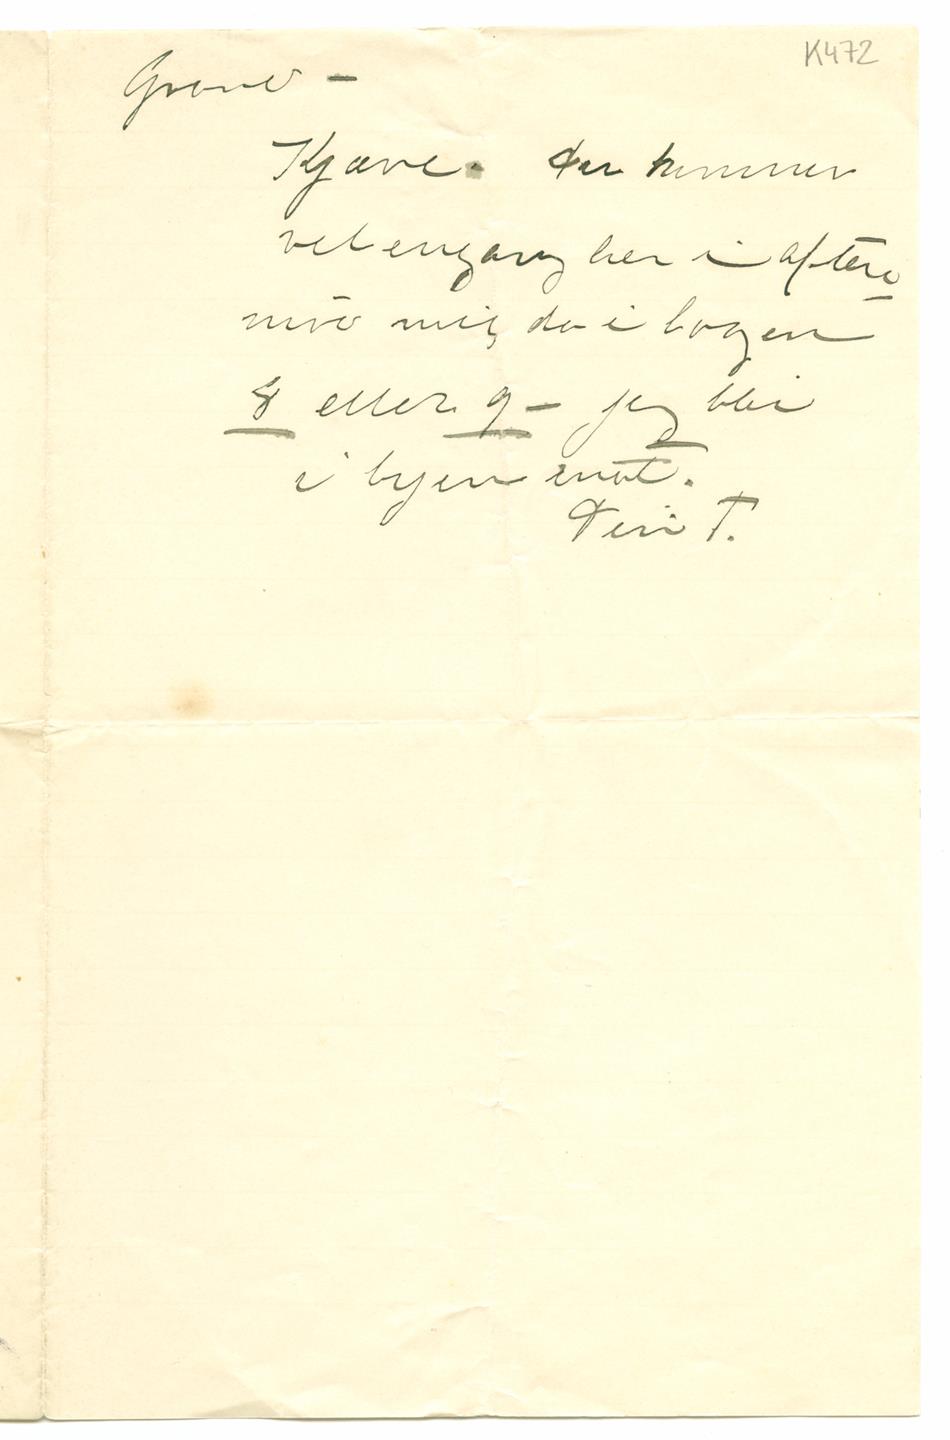 K472
Grand –
Kjære. Du kommer
vel engang her i aften
møt mig da i logen
8 eller 9 – jeg blir
i byen inat.
Din T.